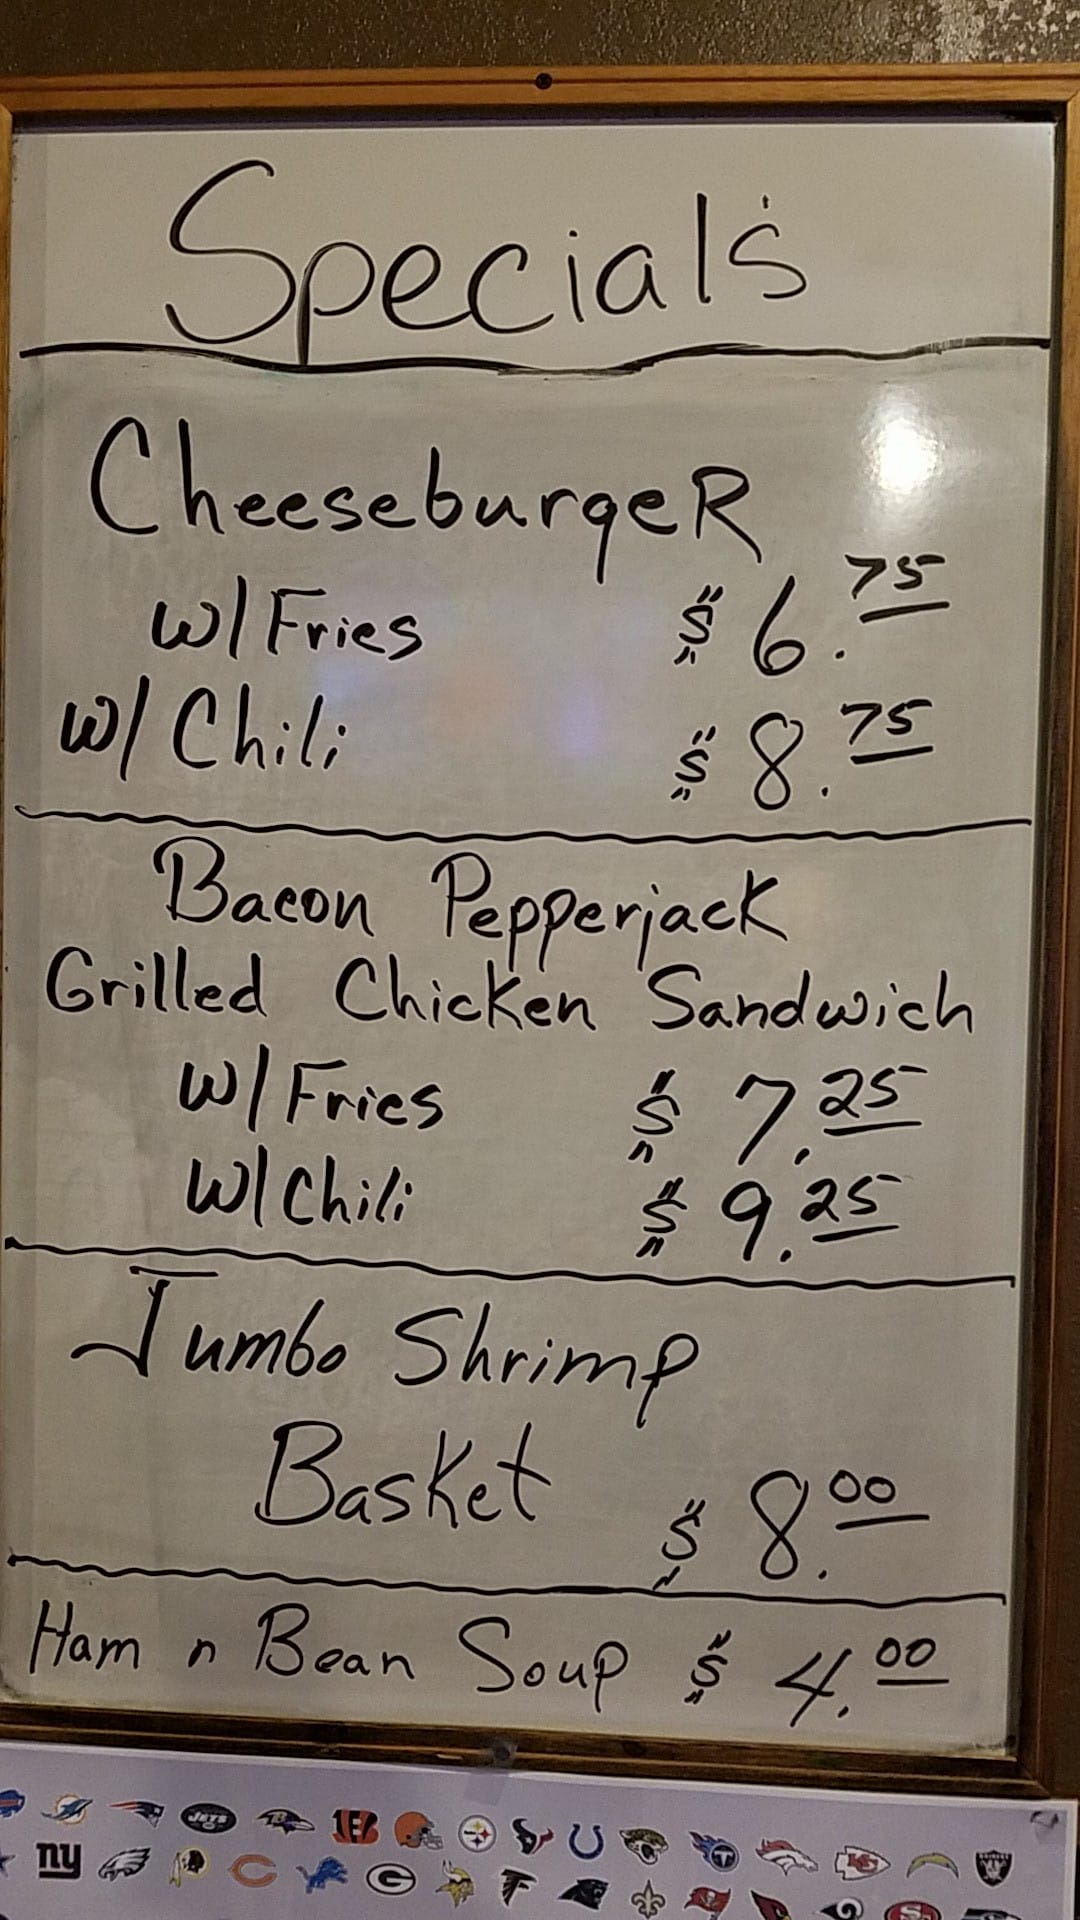 Special's
CheeseburgeR
w/ Fries $ 6.75
w/ Chili $ 8.75
Bacon Pepperjack
Grilled Chicken Sandwich
w/ Fries $ 7.25
w/ Chili $ 9.25
Jumbo Shrimp
Basket $ 8.00
Ham n Bean Soup $ 4.00
JETS
ny
G